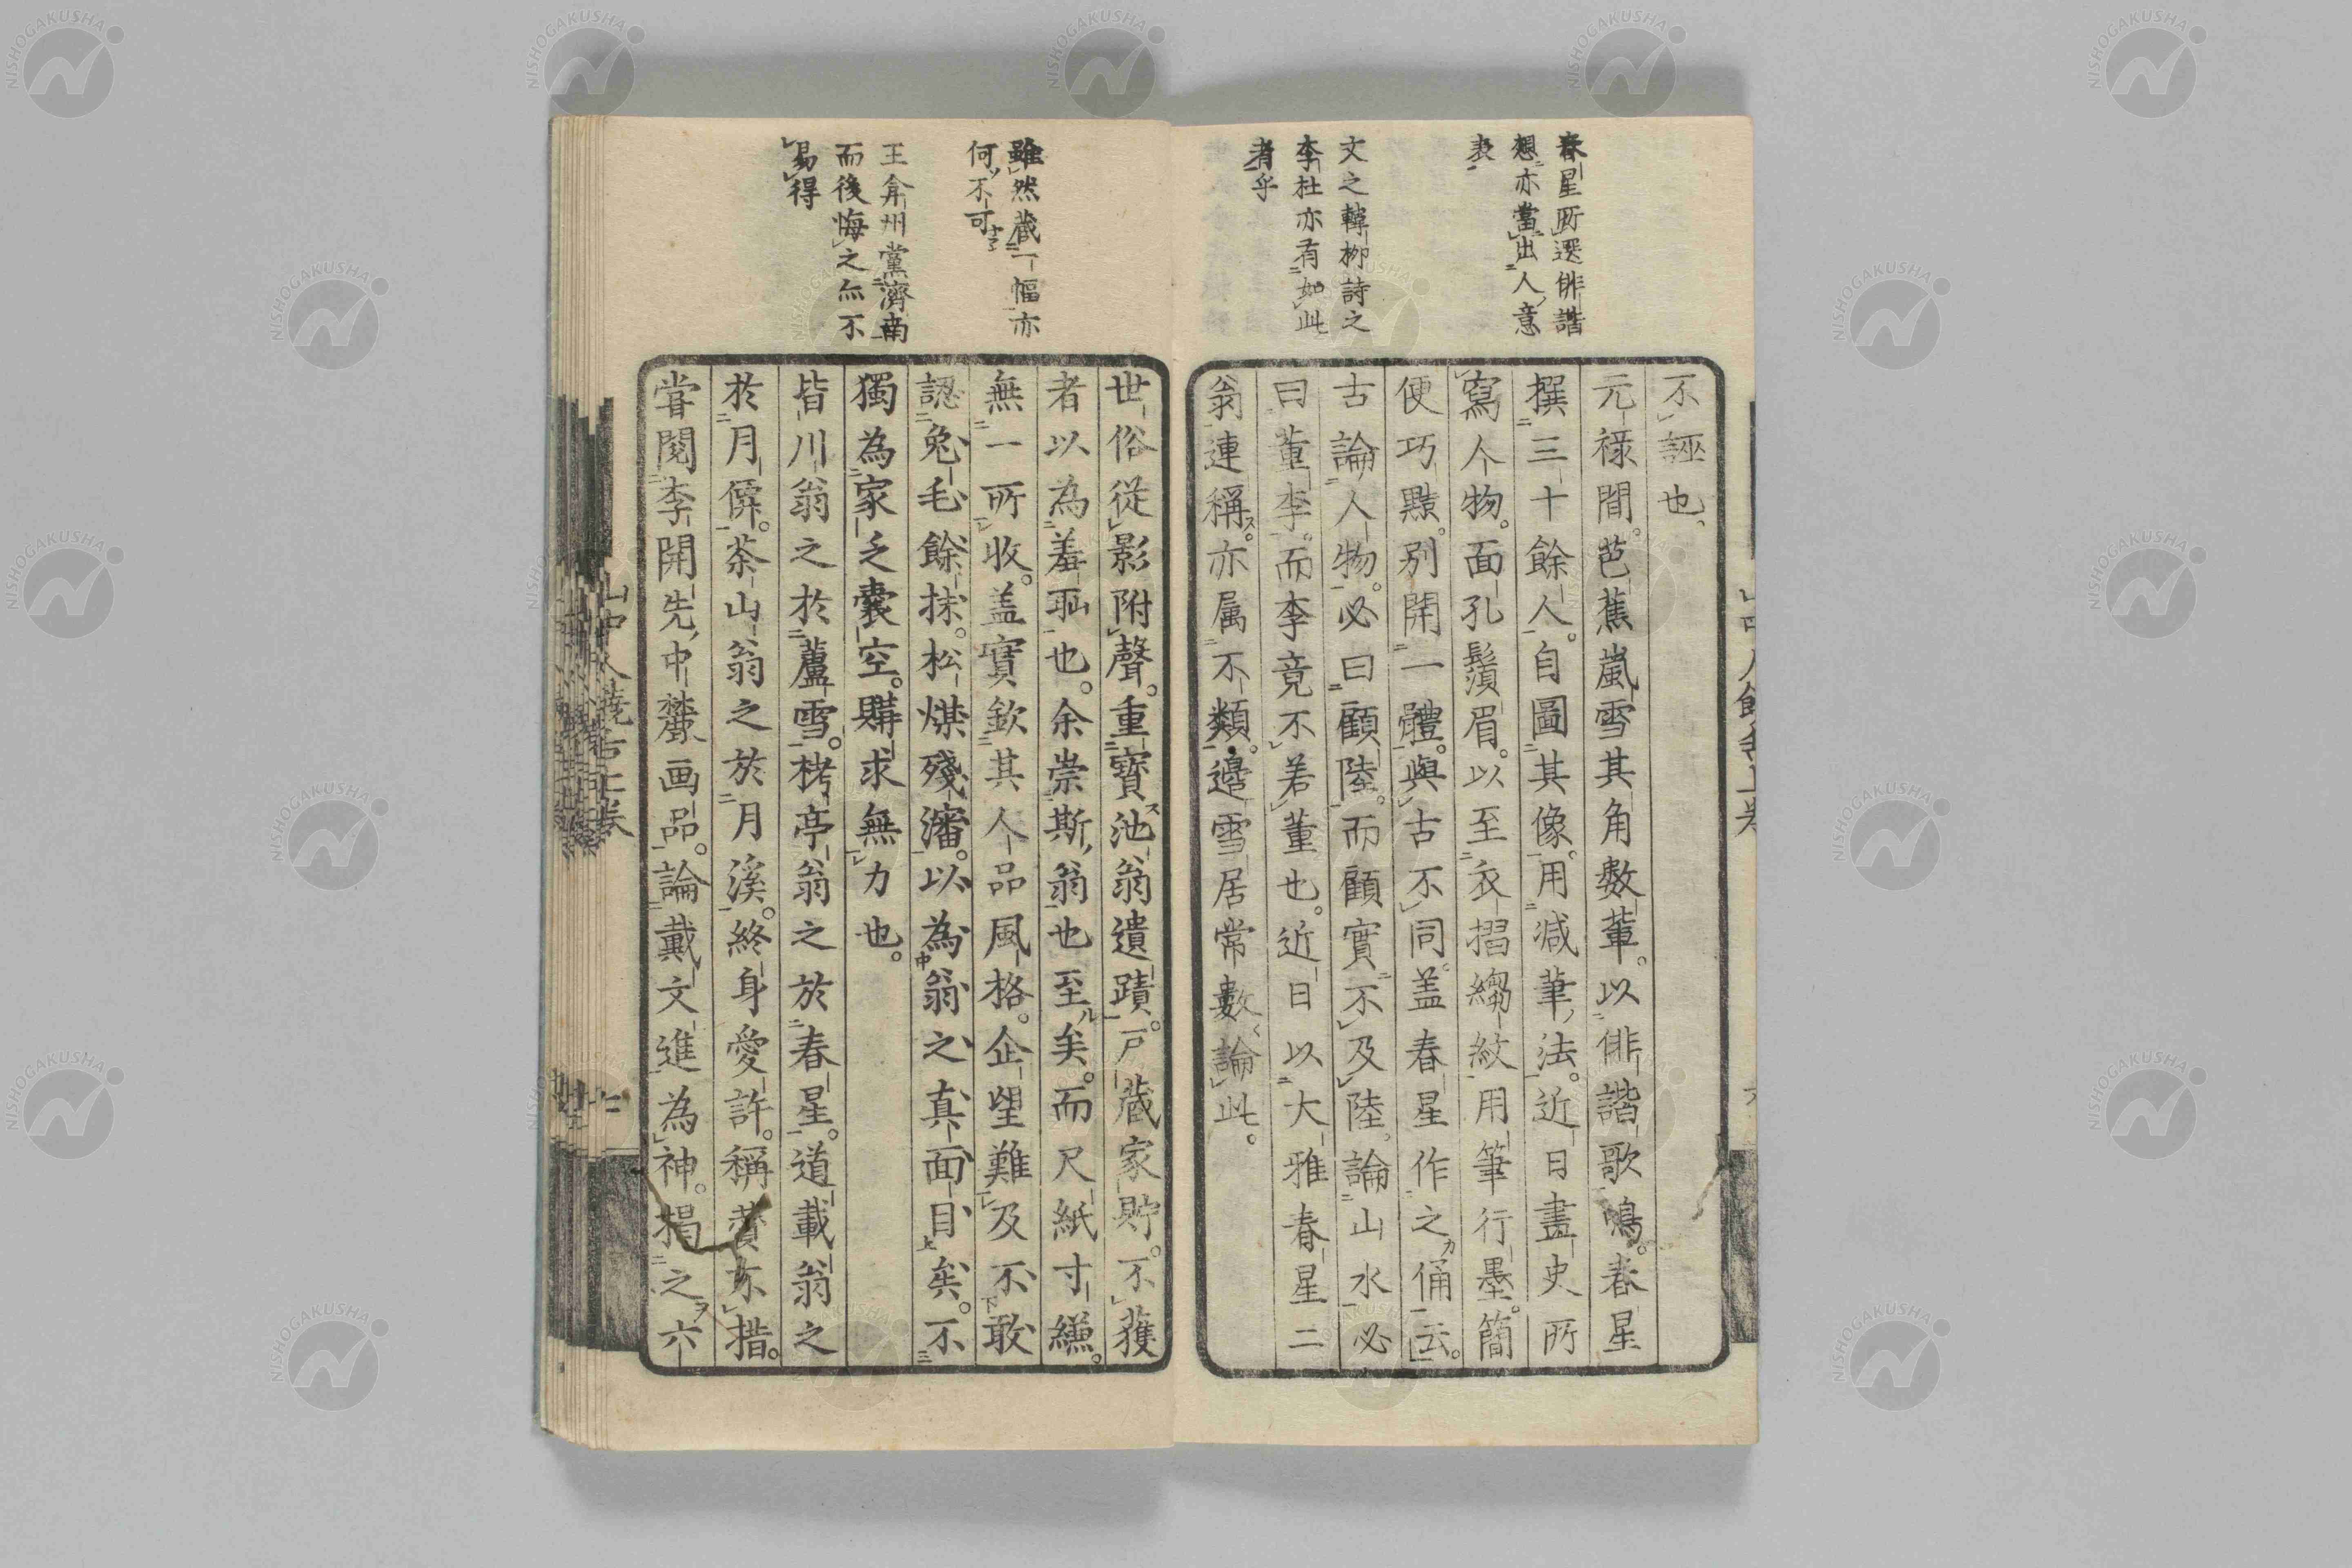 春星所選俳諧
想亦當出人意
表
文之韓柳詩之
李杜亦有如此
者乎
不誣也
元禄間。芭蕉嵐雪其角數輩。以俳諧歌鳴。春星
撰三十餘人。自圖其像。用減筆法。近日畫史所
寫人物。面孔鬚眉。以至衣摺縐紋用筆行墨。簡
便巧黠。別開一體。與古不同。盖春星作之俑云。
古論人物。必曰顧陸。而顧實不及陸。論山水必
曰董李。而李竟不若董也。近日以大雅春星二
翁連稱。亦属不類。邊雪居常數論此。
雖然藏一幅亦
何不可
王弇州黨濟南
而後悔之亦不
易得
世俗從影附聲。重寳池翁遺蹟。戸藏家貯。不獲
者以為羞耻也。余崇斯翁也至矣。而尺紙寸縑。
無一所收。盖實欽其人品風格。企望難及不敢
認兔毛餘抹。松煤殘瀋。以為翁之真面目矣。不
獨為家乏嚢空。購求無力也。
皆川翁之於蘆雪。栲亭翁之於春星。道載翁之
於月僊。茶山翁之於月溪。終身愛許。稱賛亦措。
甞閲李開先中麓画品。論戴文進為神。掲之六